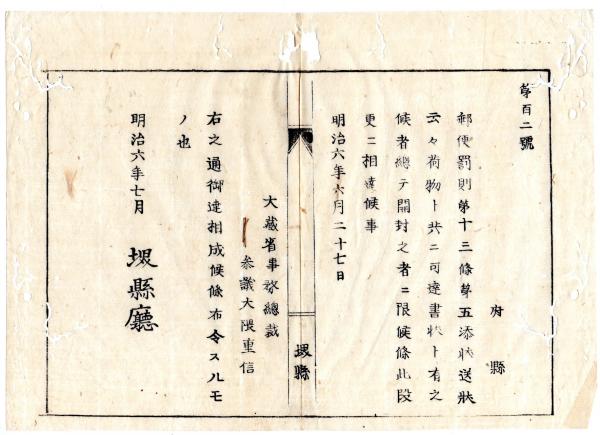 第百二號
府縣
郵便罰則第十三條第五添狀送狀
云々荷物ト共ニ可達書狀ト有之
候者總テ開封之者ニ限候條此段
更ニ相達候事
明治六年六月二十七日
大藏省事務總裁
參議大隈重信
堺縣
右之通御達相成候條布令スルモ
ノ也
明治六年七月
堺縣廳